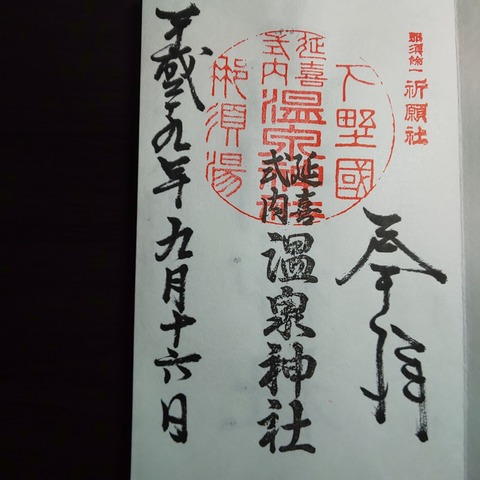 那須餘一
祈願社
奉拝
下野國
延喜
式内
温泉神社
那須湯
延喜
式内
温泉神社
平成二十九年九月十六日